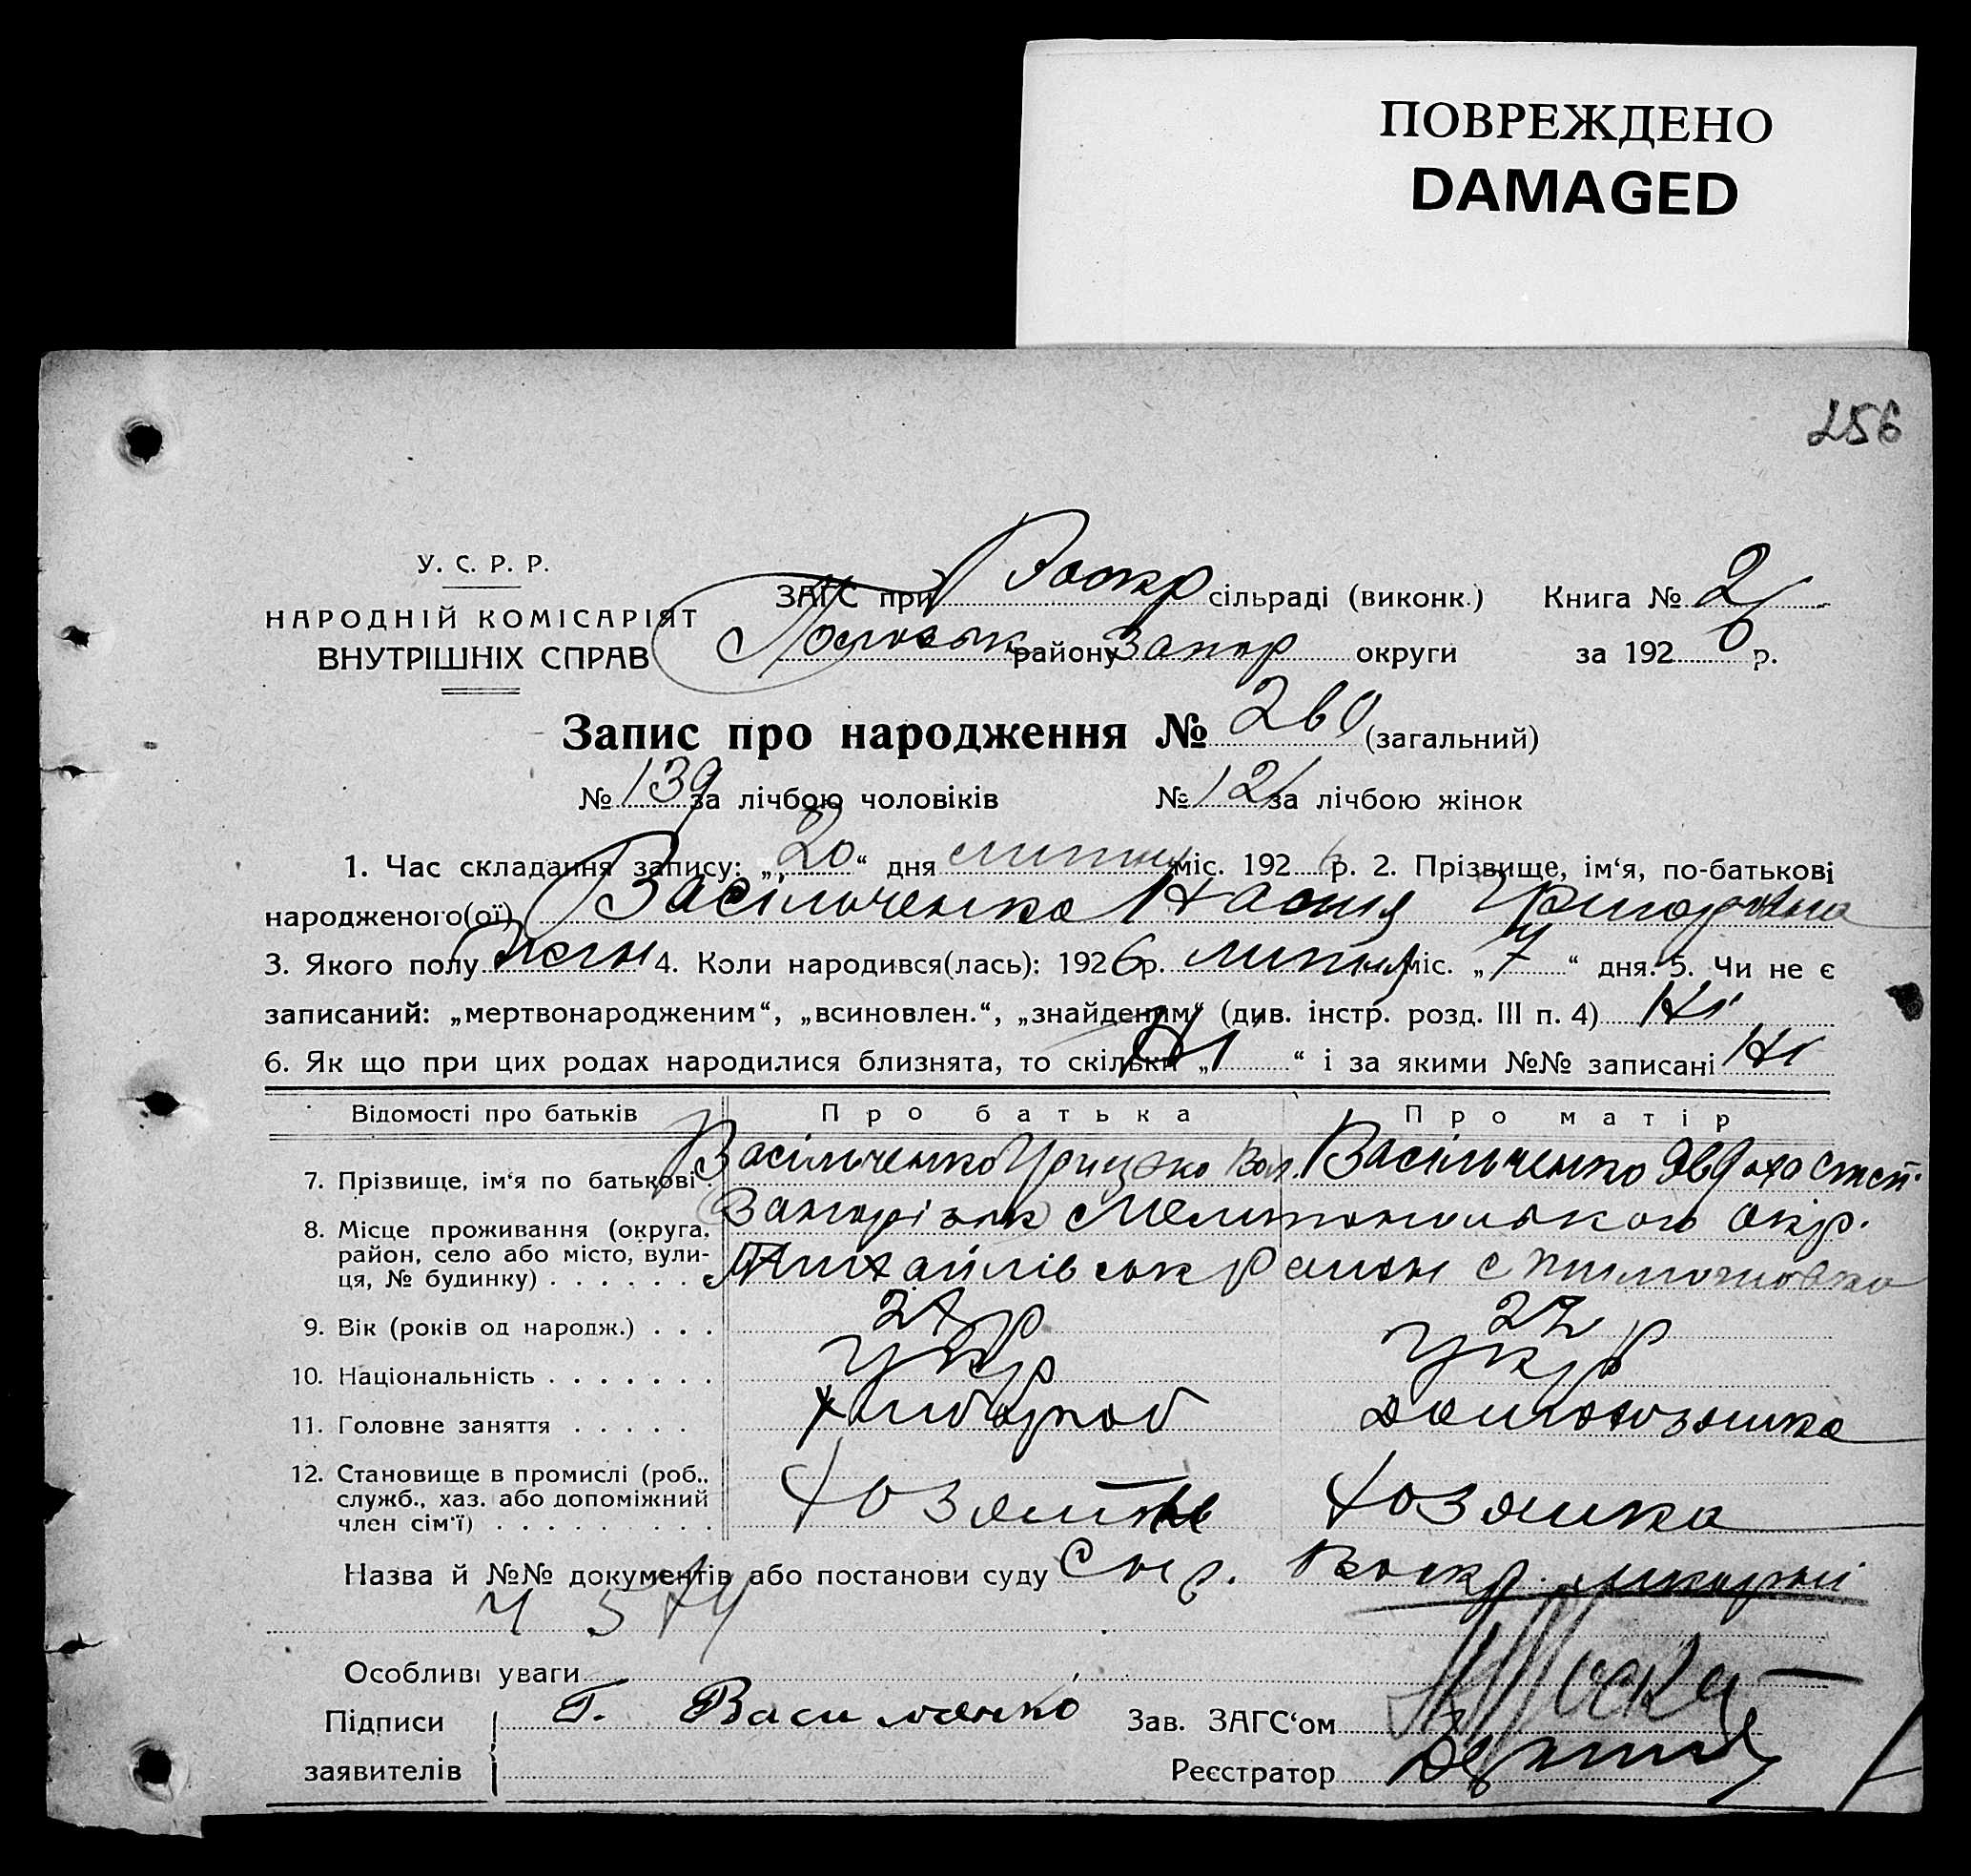 ПОВРЕЖДЕНО
DAMAGED
256
У. С. Р. Р.
НАРОДНІЙ КОМІСАРІЯТ
ВНУТРІШНІХ СПРАВ
ЗАГС при сільраді (виконк.) Книга № 2
району Запор округи за 1926 р.
Запис про народження № 260 (загальний)
№ 139 за лічбою чоловіків № 121 за лічбою жінок
1. Час складання запису: „20“ дня липня міс. 1926 р. 2. Прізвище, ім'я, по-батькові
народженого(ої) Васільченко Настя Григоровна
3. Якого полу жін 4. Коли народився(лась): 1926 р. липня міс. „7“ дня. 5. Чи не є
записаний: „мертвонародженим“, „всиновлен.“, „знайденим“ (див. інстр. розд. III п. 4) Ні
6. Як що при цих родах народилися близнята, то скільки „Ні“ і за якими №№ записані Ні
Відомості про батьків Про батька Про матір
7. Прізвище, ім'я по батькові. Васільченко Грицько Вас. Васільченко Явдоха Степ.
8. Місце проживання (округа, район, село або місто, вулиця, № будинку) . . . . . . Запорізьк Мелитопольскои окр.
Михайлівськ район с Тимошовка
9. Вік (років од народж.) . . . 27 р 27
10. Національність . . . . . . . Укр Укр
11. Головне заняття . . . . . хлібороб домохозяика
12. Становище в промислі (роб., служб., хаз. або допоміжний член сім'ї) . . . . . . . . . хозяин хозяика
Назва й №№ документів або постанови суду
Ч 574
Особливі уваги
Підписи Г. Василченко Зав. ЗАГС'ом
заявителів Реєстратор